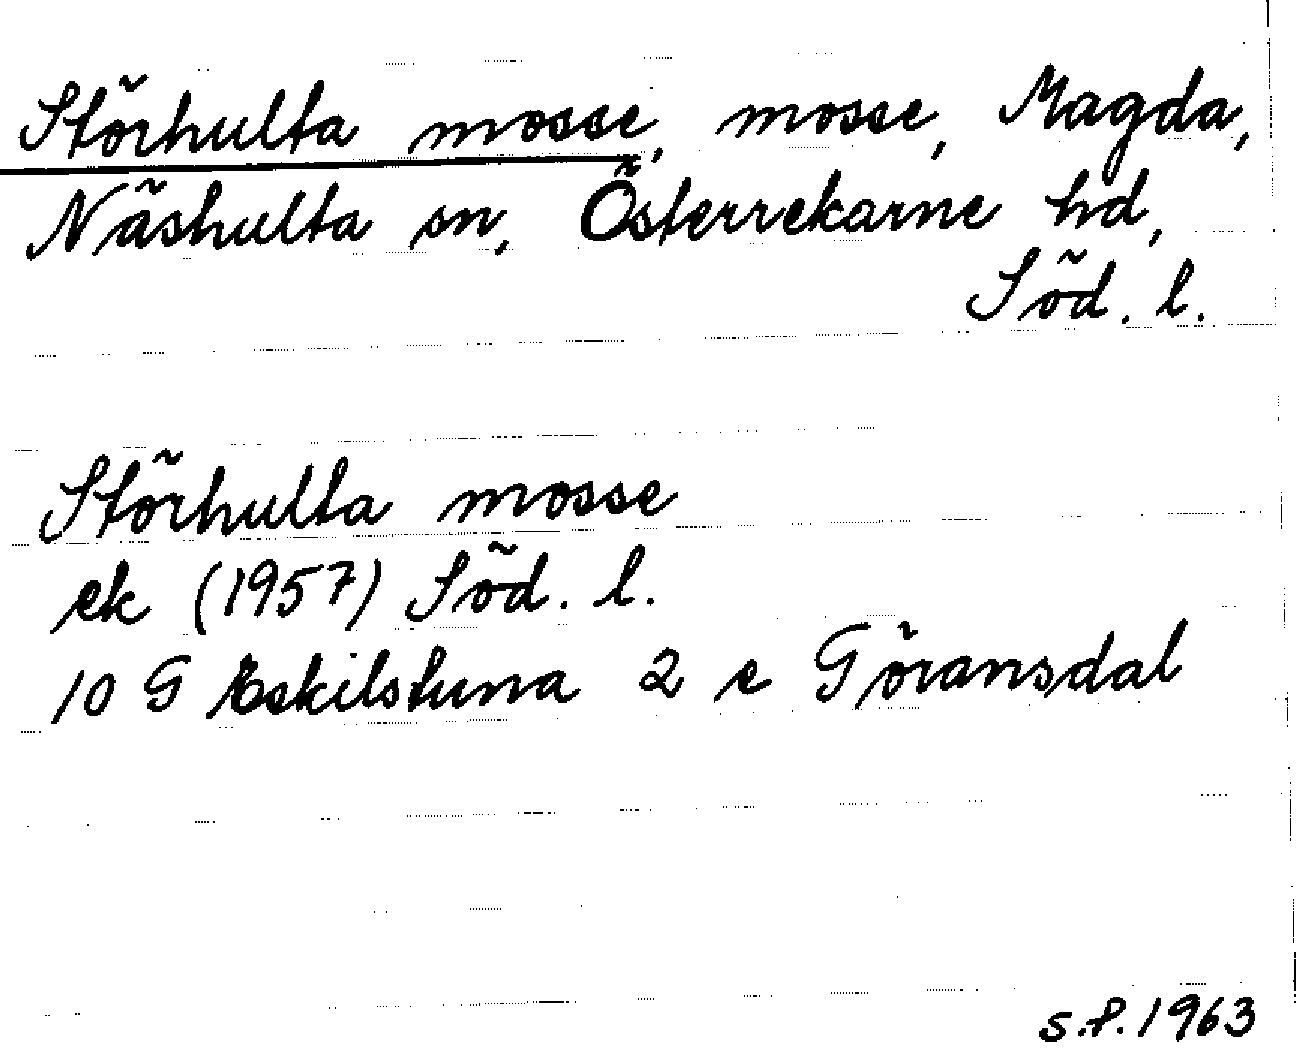 Störhulta mosse, mosse, Magda,
Näshulta sn, Österrekarne hd,
Söd. l.
Störhulta mosse
ek (1957) Söd. l.
10 G Eskilstuna 2 e Göransdal
S.P. 1963